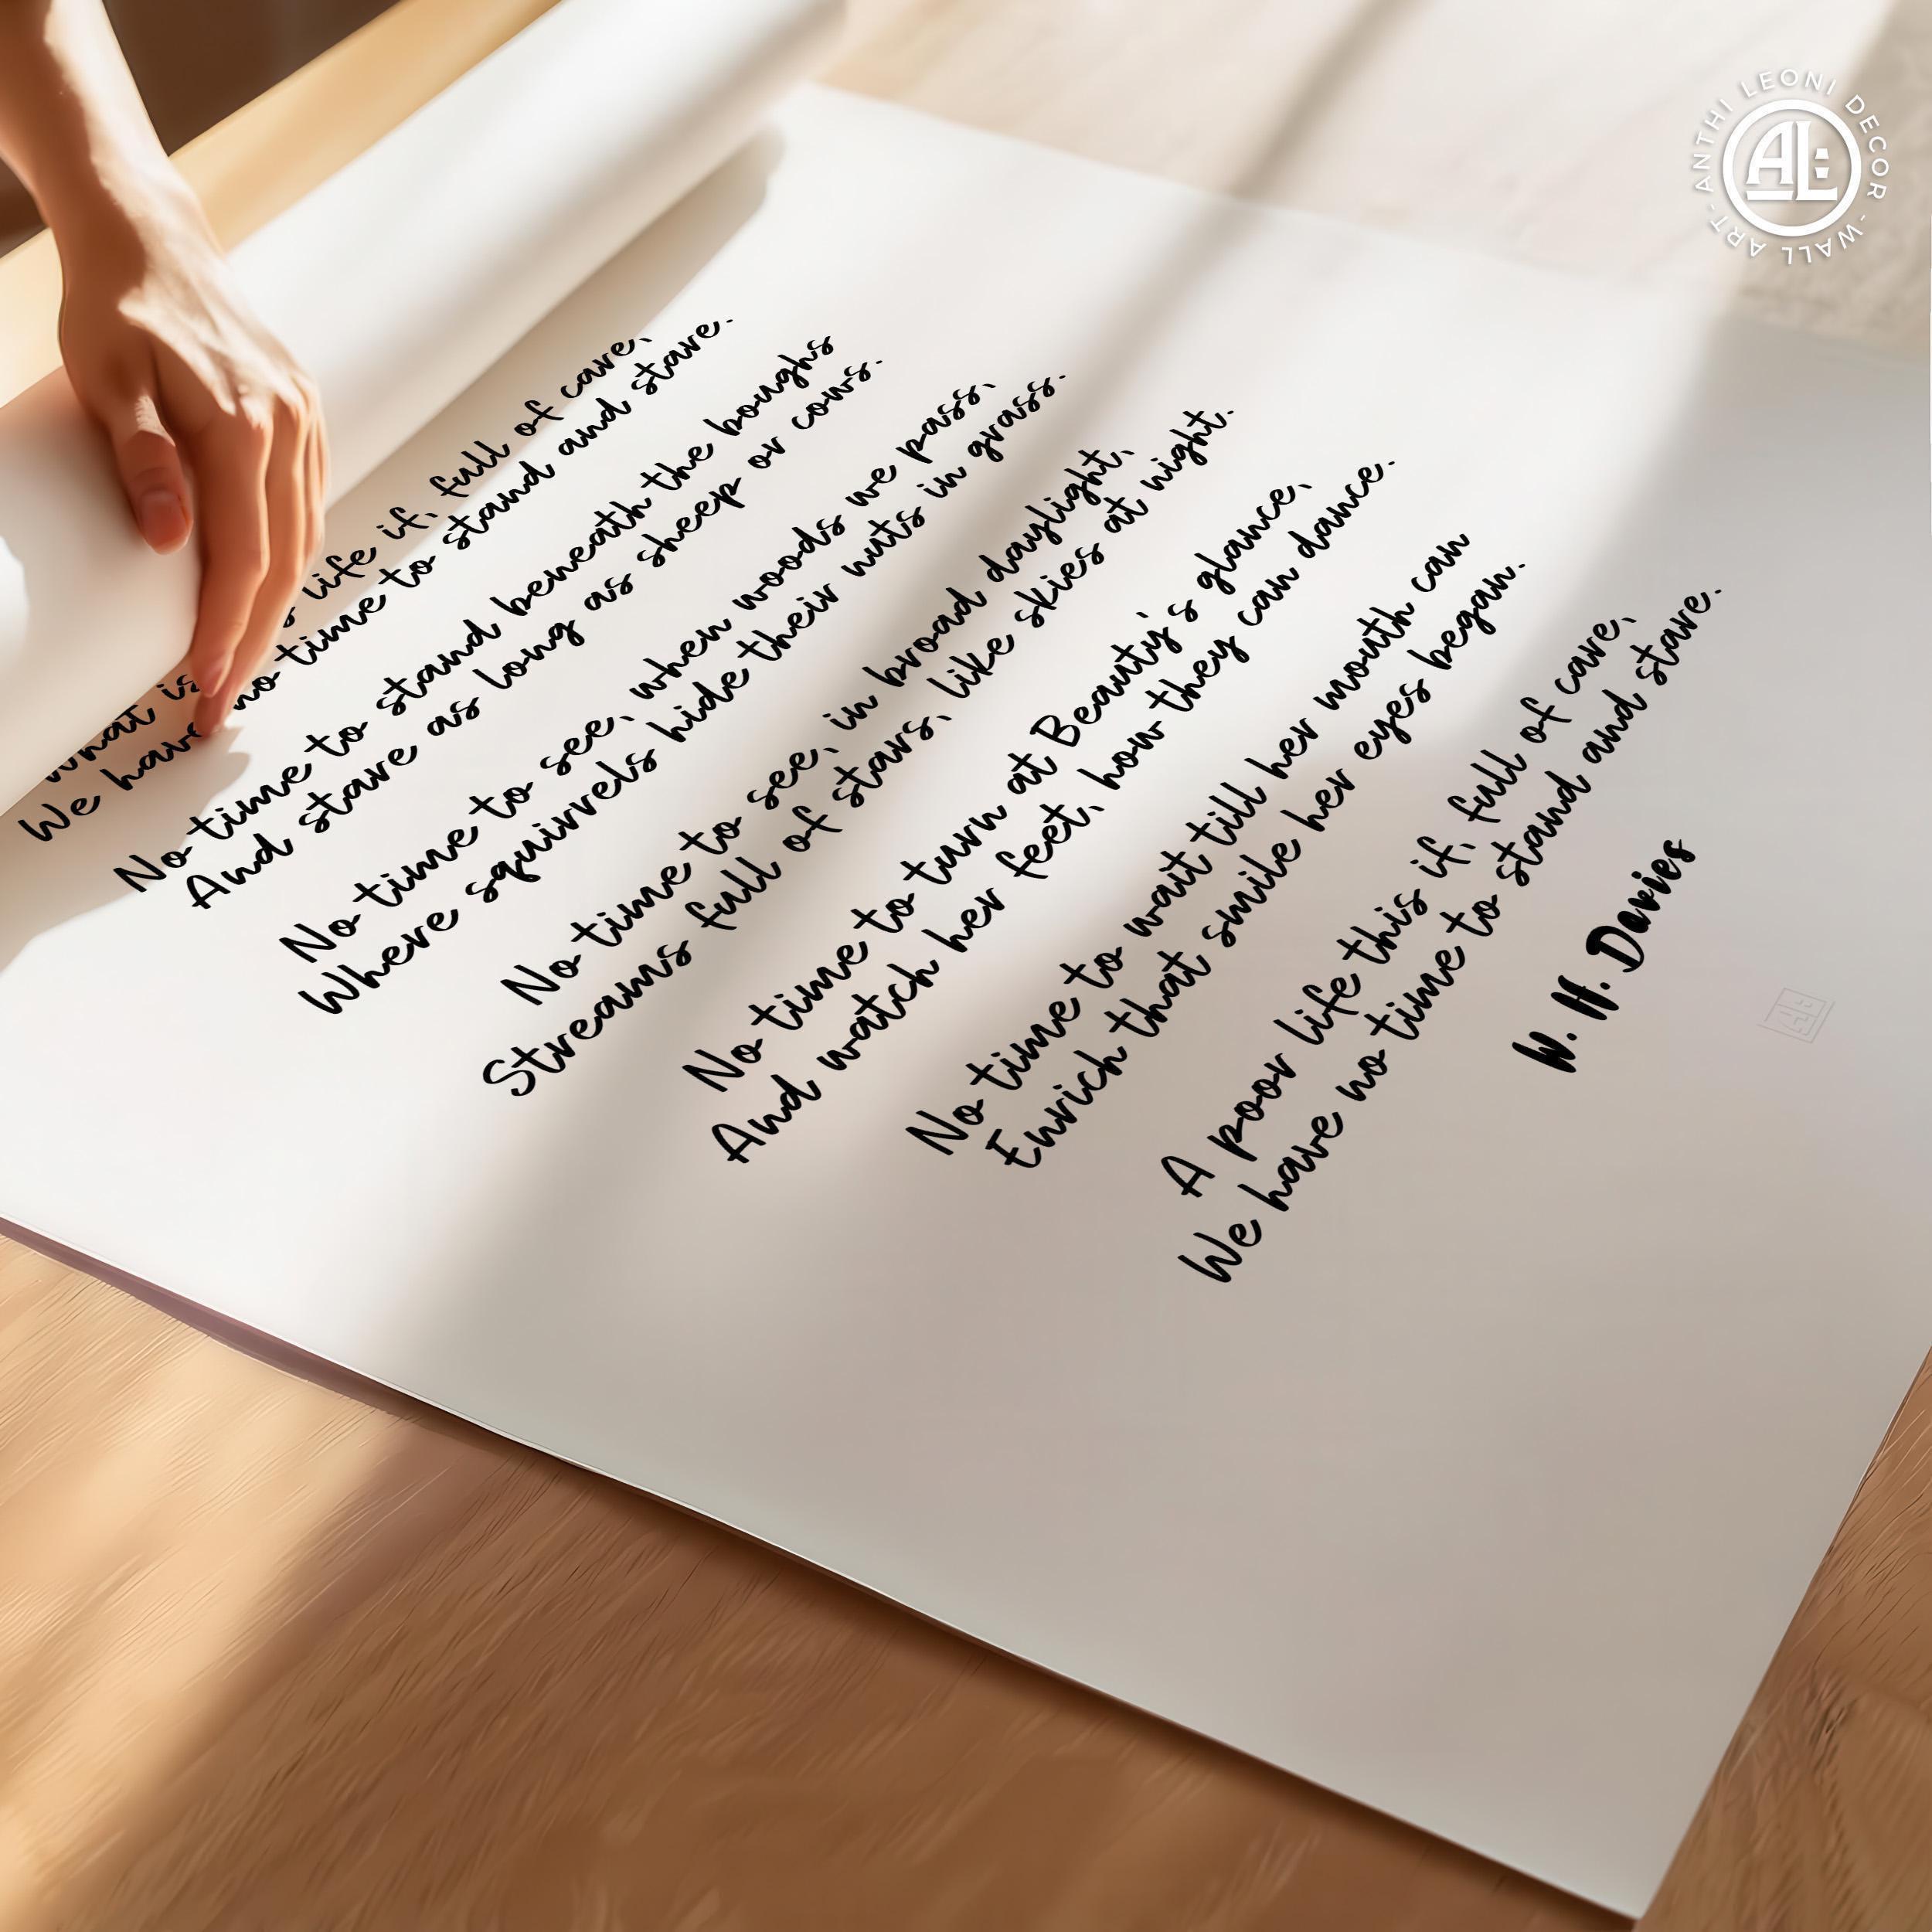 What is life if, full of care,
We have no time to stand and stare.
No time to stand beneath the boughs
And stare as long as sheep or cows.
No time to see, when woods we pass,
Where squirrels hide their nuts in grass.
No time to see, in broad daylight,
Streams full of stars, like skies at night.
No time to turn at Beauty's glance,
And watch her feet, how they can dance.
No time to wait till her mouth can
Enrich that smile her eyes began.
A poor life this if, full of care,
We have no time to stand and stare.
W. H. Davies
ANTHI LEONI DECOR - WALL ART -
AL